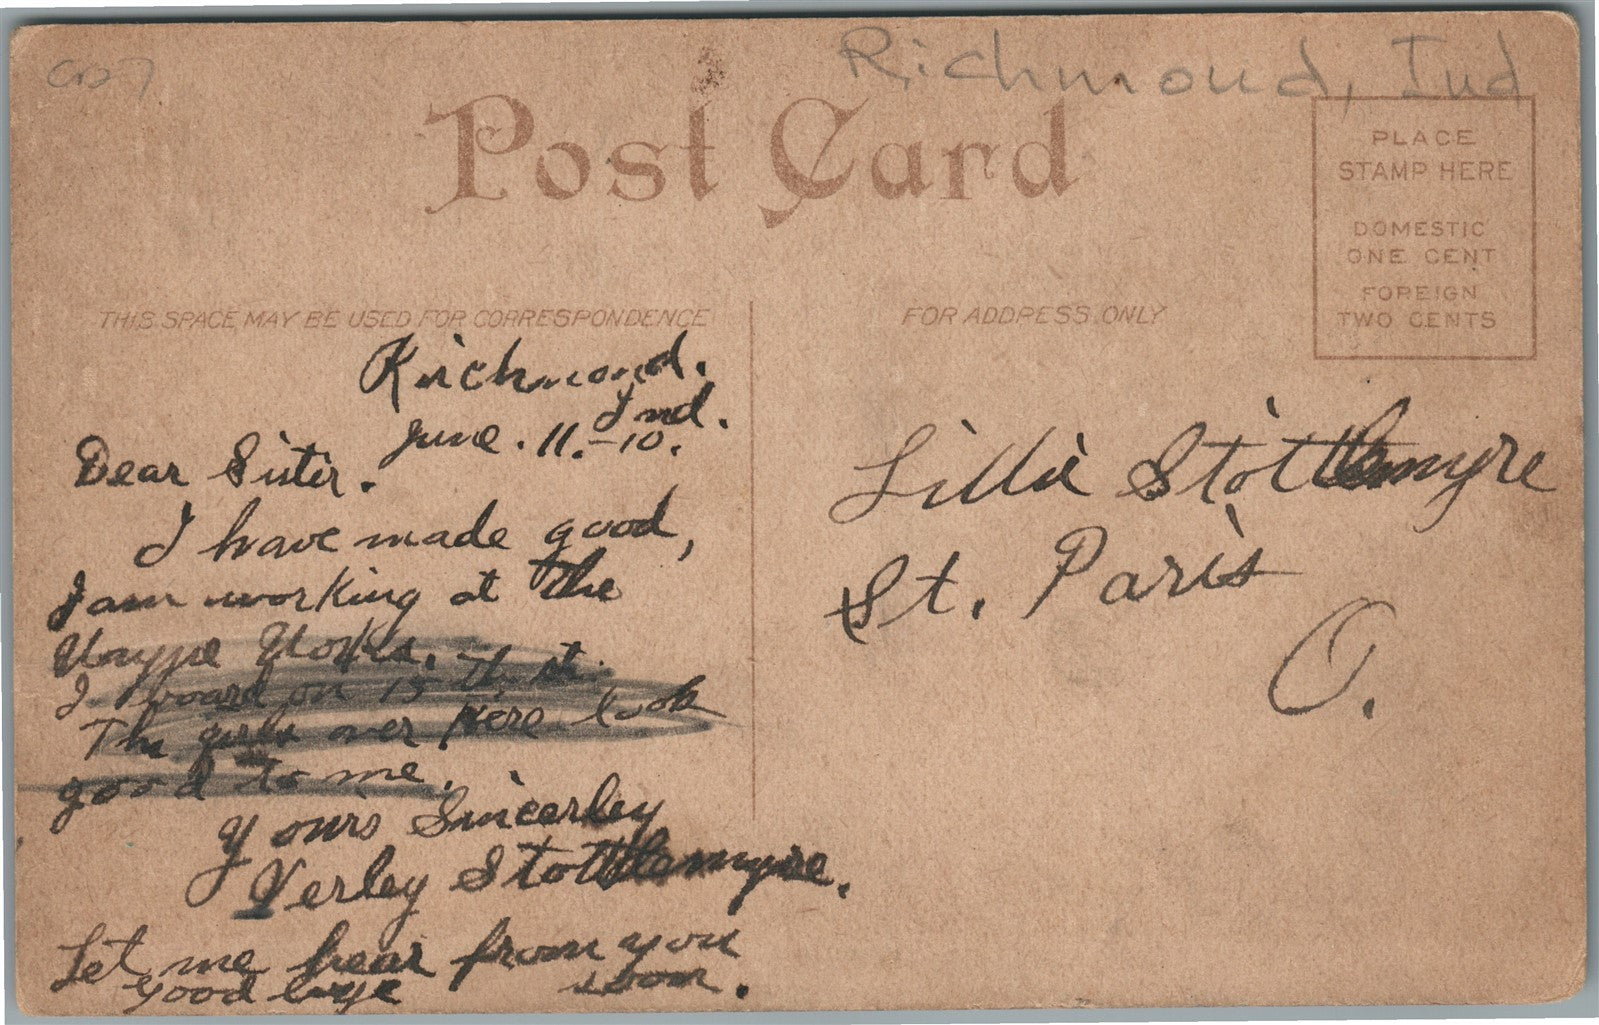 Richmond, Ind
Post Card
PLACE
STAMP HERE
DOMESTIC
ONE CENT
FOREIGN
TWO CENTS
THIS SPACE MAY BE USED FOR CORRESPONDENCE
Richmond.
Ind.
June. 11.-10.
Dear Sister.
I have made good,
I am working at the
Wayne Works.
I board on 15 th. st.
The girls over here look
good to me.
Yours Sincerley
Verley Stottlemyre.
Let me hear from you
soon.
good bye
FOR ADDRESS ONLY
Lillie Stottlemyre
St. Paris
O.